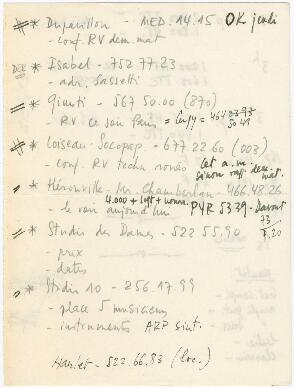 * Duparillon - MED. 14.15 OK jeudi
- conf. RV dem. mat
* Isabel - 752 77.23
- adr. Sassetti
* Giunti - 567 50.00 (870)
- RV ce soir = 464 03 93
50 49
* Loiseau - Socopap. - 677 22 60 (003)
- conf. RV techn cet a.m.
sinon rapp. dem. mat.
* Hérouville - Mr. Chamberlan - 466.48.26
4.000 + loft +
- le voir aujourd'hui PYR 53.39 -
73
* Studio des Dames - 522 55.90 7,20
- prix
- dates
* Studio 10 - 256.17 99
- place 5 musiciens
- instruments ARP sint.
Hamlet - 522.66.83 (loc.)